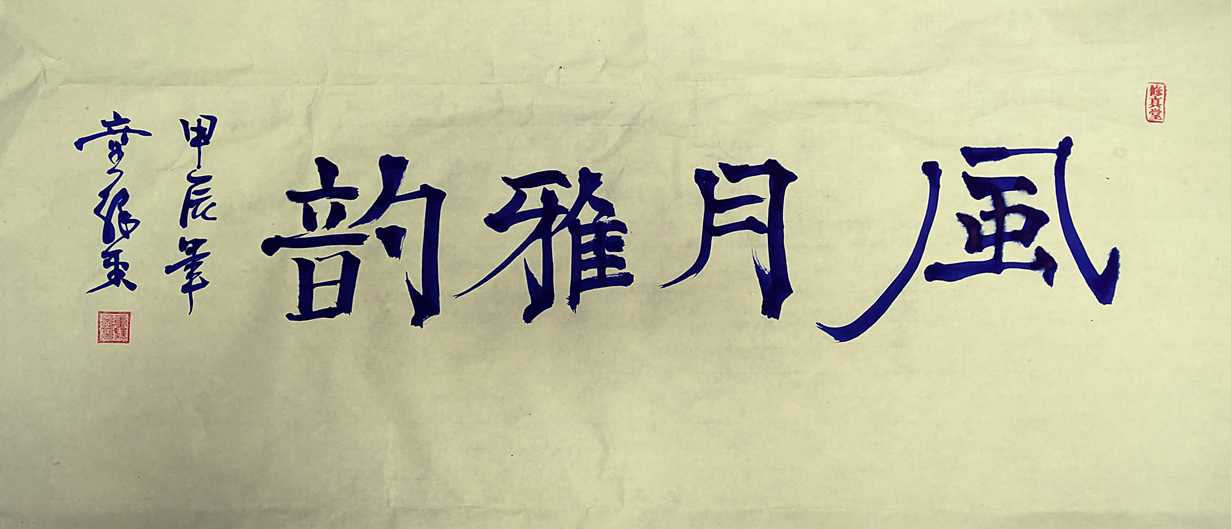 修真堂
風月雅韵
甲辰筆